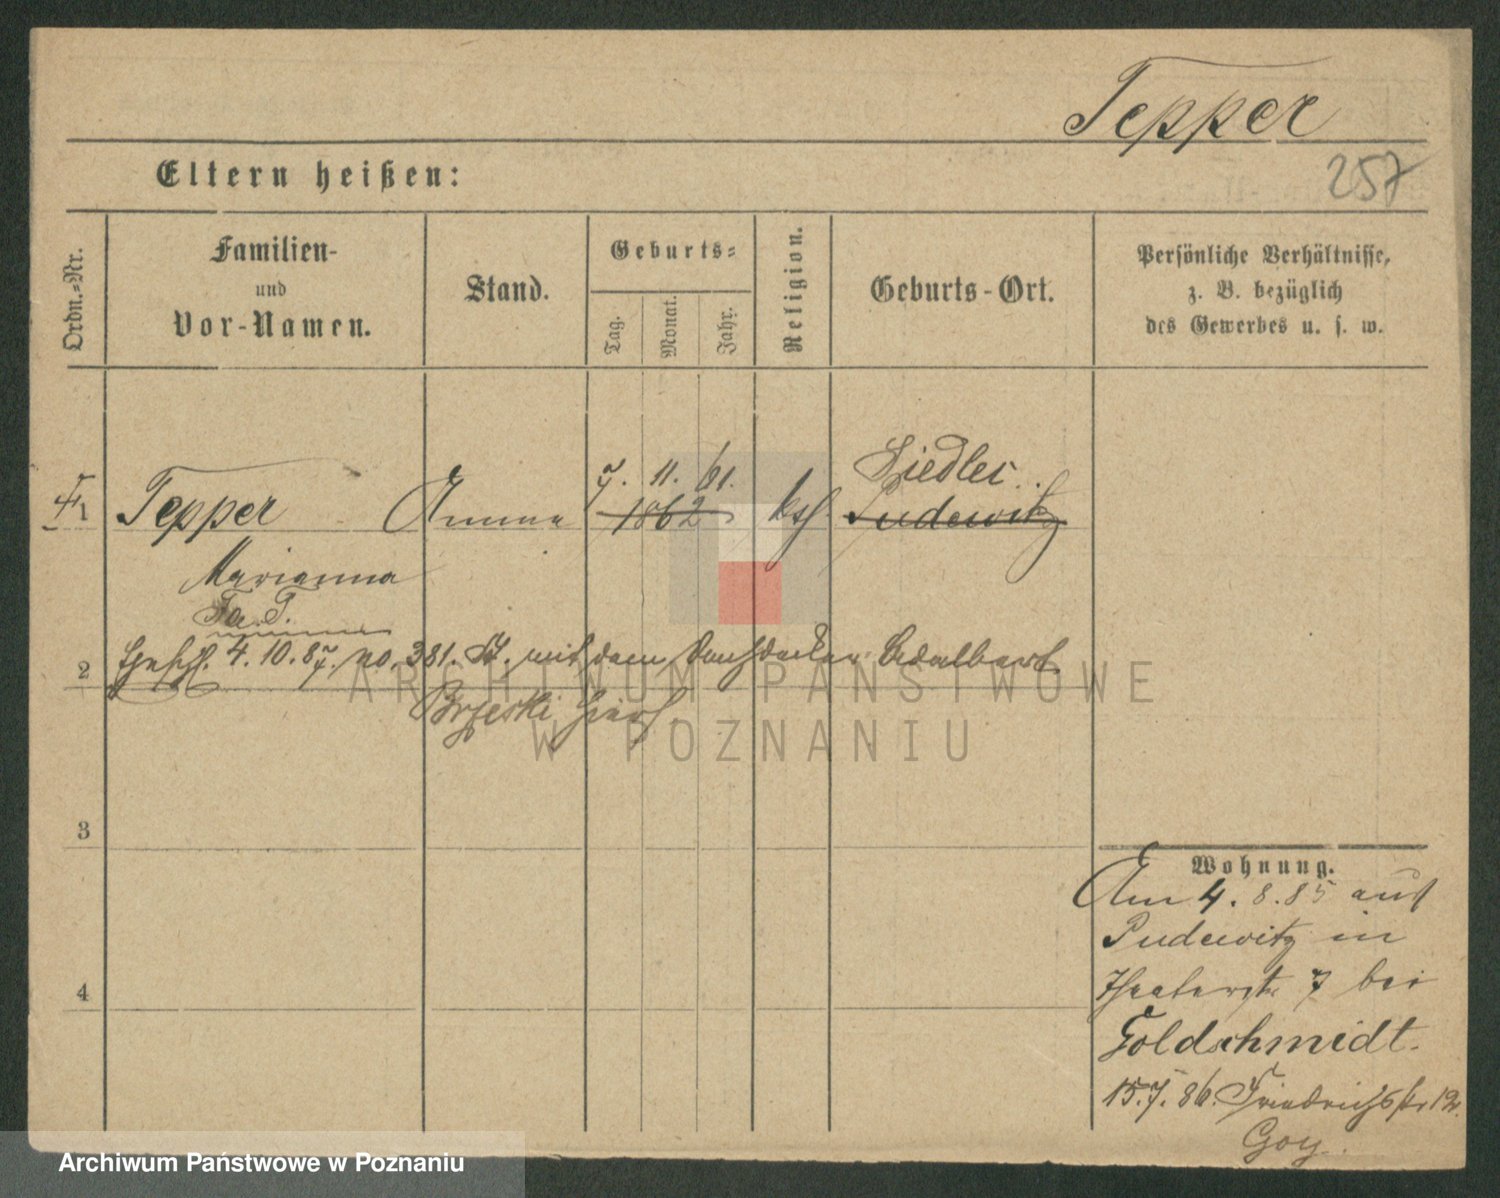 Tepper
257
Eltern heißen:
Ordn.-Nr.
Familien-
und
Vor-Namen.
Stand.
Geburts-
Tag.
Monat.
Jahr.
Religion.
Geburts-Ort.
Persönliche Verhältnisse,
z. B. bezüglich
des Gewerbes u. s. w.
7. 11. 61. Siedler
1 Tepper Anna 1862 ksh. Pudewitz
Marianna
2 4.10.87. no. 381. mit dem Dachdecker Adalbert
3
4
Wohnung.
Am 4. 8. 85 aus
Pudewitz in
Theaterstr 7 bei
Goldschmidt.
15.7.86. Friedrichsstr 12.
Goy.
ARCHIWUM PAŃSTWOWE
W POZNANIU
Archiwum Państwowe w Poznaniu